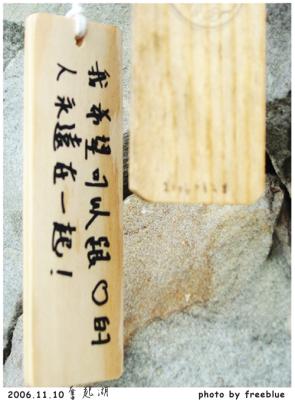 我希望可以跟♡的
人永遠在一起!
2006.11.10 奮起湖
photo by freeblue